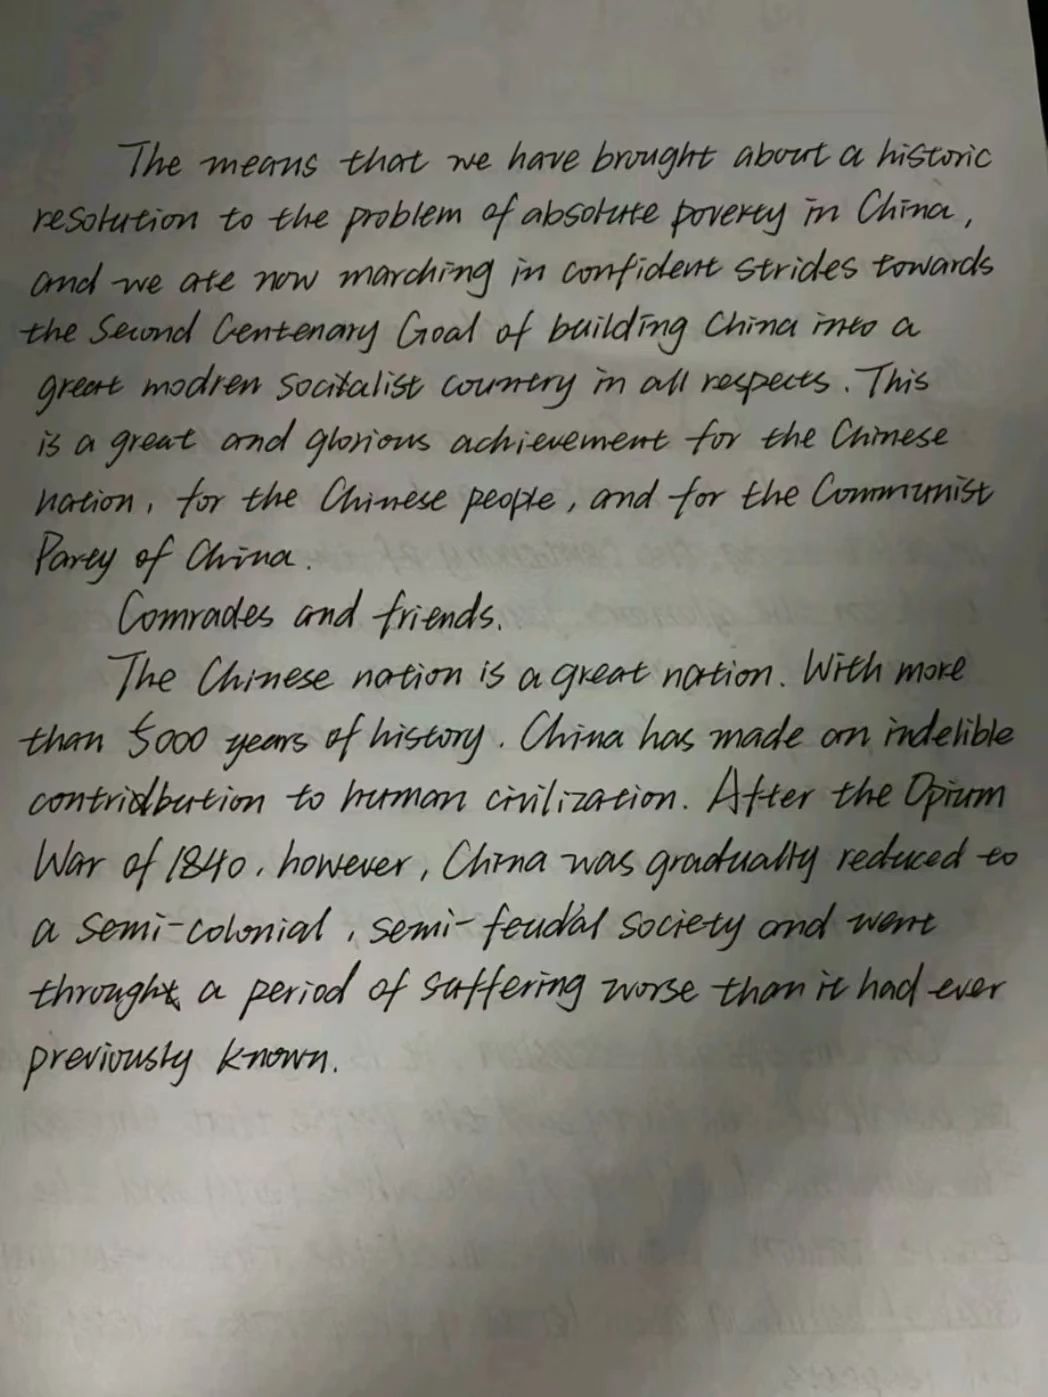 The means that we have brought about a historic
resolution to the problem of absolute poverty in China,
and we ate now marching in confident strides towards
the Second Centenary Goal of building China into a
great modren socitalist country in all respects. This
is a great and glorious achievement for the Chinese
nation, for the Chinese people, and for the Communist
Party of China.
Comrades and friends.
The Chinese nation is a great nation. With more
than 5000 years of history. China has made an indelible
contridbution to human civilization. After the Opium
War of 1840, however, China was gradually reduced to
a semi-colonial, semi-feudal society and went
throught a period of suffering worse than it had ever
previously known.